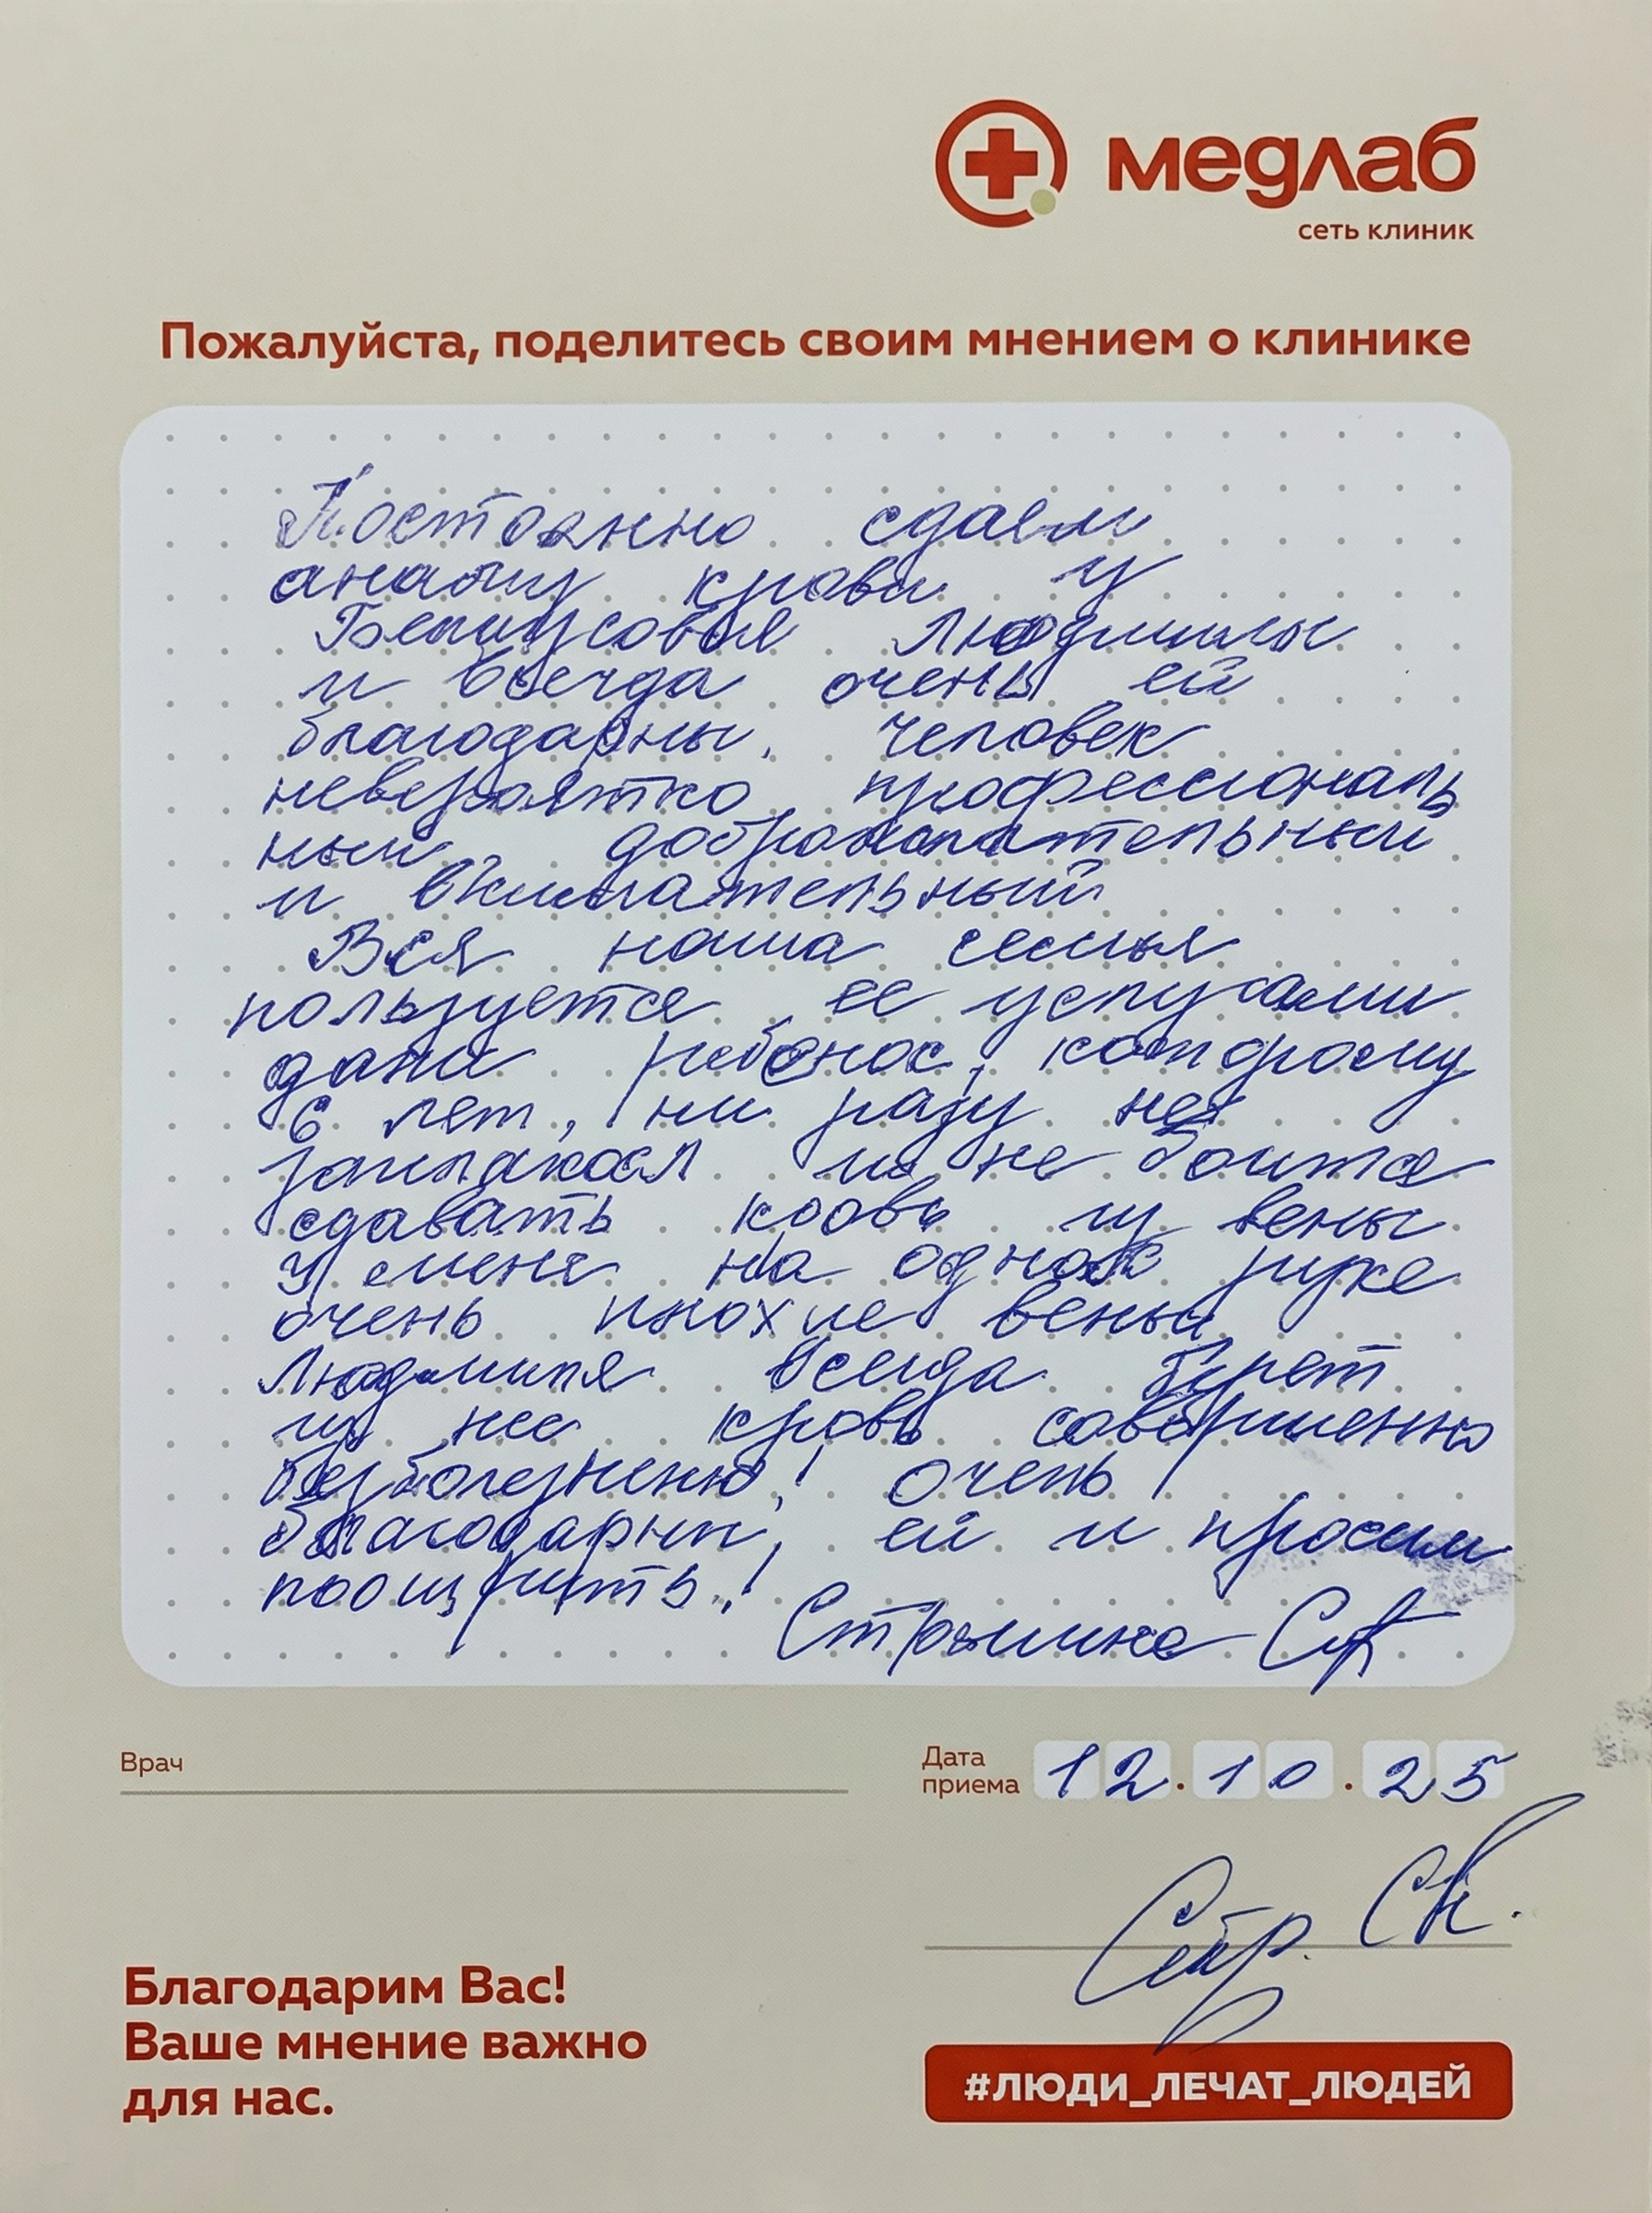 медлаб
сеть клиник
Пожалуйста, поделитесь своим мнением о клинике
Постоянно сдаем
анализ крови у
Людмилы
и всегда очень ей
благодарны. Человек
невероятно профессиональ
ный, доброжелательный
и внимательный
Вся наша семья
пользуется ее услугами
даже ребенок, которому
6 лет, ни разу не
заплакал и не боится
сдавать кровь из вены
У меня на одной руке
очень плохие вены
Людмила всегда берет
из нее кровь совершенно
безболезненно! Очень
благодарны ей и просим
поощрить!
Врач
Дата
приема 12.10.25
Благодарим Вас!
Ваше мнение важно
для нас.
#ЛЮДИ_ЛЕЧАТ_ЛЮДЕЙ